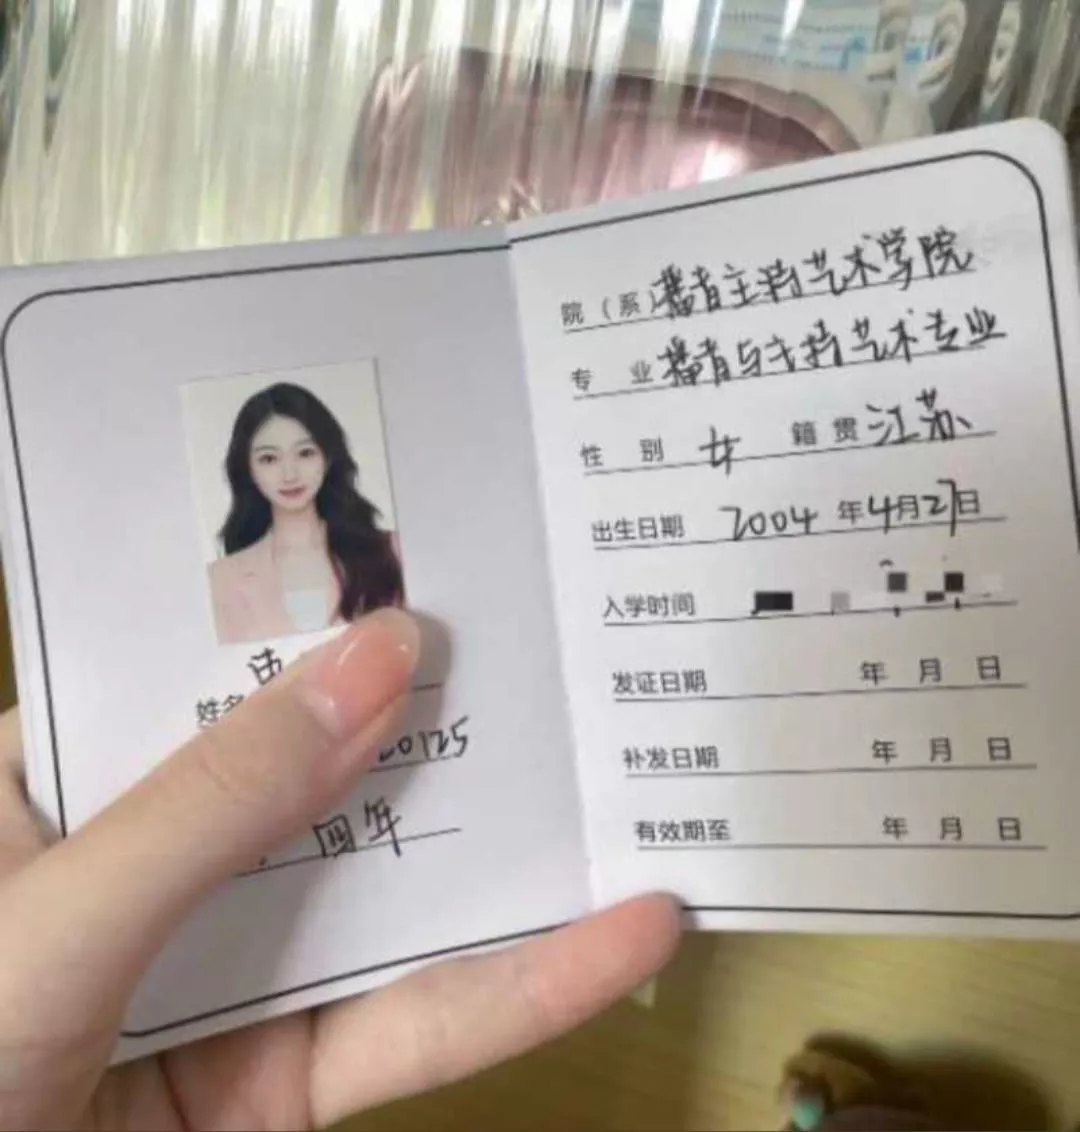 姓名
20125
四年
院（系）播音主持艺术学院
专 业 播音与主持艺术专业
性 别 女 籍贯 江苏
出生日期 2004 年 4 月 27 日
入学时间
发证日期 年 月 日
补发日期 年 月 日
有效期至 年 月 日